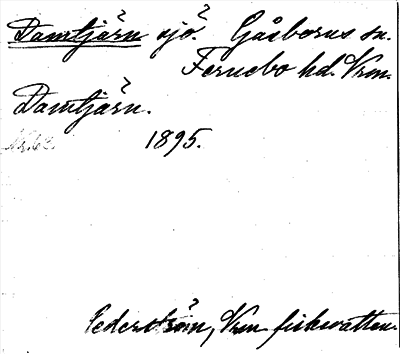 Damtjärn sjö. Gåsborns sn.
Fernebo hd. Vrm.
Damtjärn.
1895.
Cederström, Vrm fiskevatten.